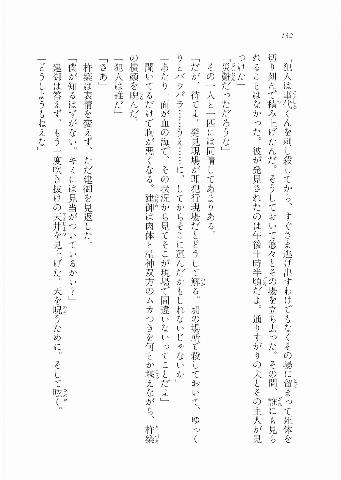 132
「犯人は事代くんを刺し殺してから、すぐさま逃げ出すわけでもなくその場に留まって死体を
切り刻んで積み上げたんだ。そうしておいて悠々とその場を立ち去った。その間、誰にも見ら
れることはなかった。彼が発見されたのは午後十時半頃だよ。通りすがりの犬とその主人が見
つけた」
「災難だっただろうな」
その一人と一匹には同情してあまりある。
「だが、待てよ。発見現場が即犯行現場だとどうして解る。別の場所で殺しておいて、ゆっく
りとバラバラ……うえ……に、してからそこに運んだかもしれないじゃないか」
「あたり一面が血の海で、その状況から見てそこが現場で間違いないってことだよ」
聞いてるだけで胸が悪くなる。建御は肉体と精神双方のムカつきを何とか堪えながら、杵築
の横顔を睨んだ。
「犯人は誰だ」
「さあ」
杵築は表情を変えず、ただ建御を見返した。
「僕が知るはずがない。キミには見当がついているかい？」
建御は答えず、もう一度吹き抜けの天井を見上げた。天を呪うために。そして呟く。
「どうしようもねえな」